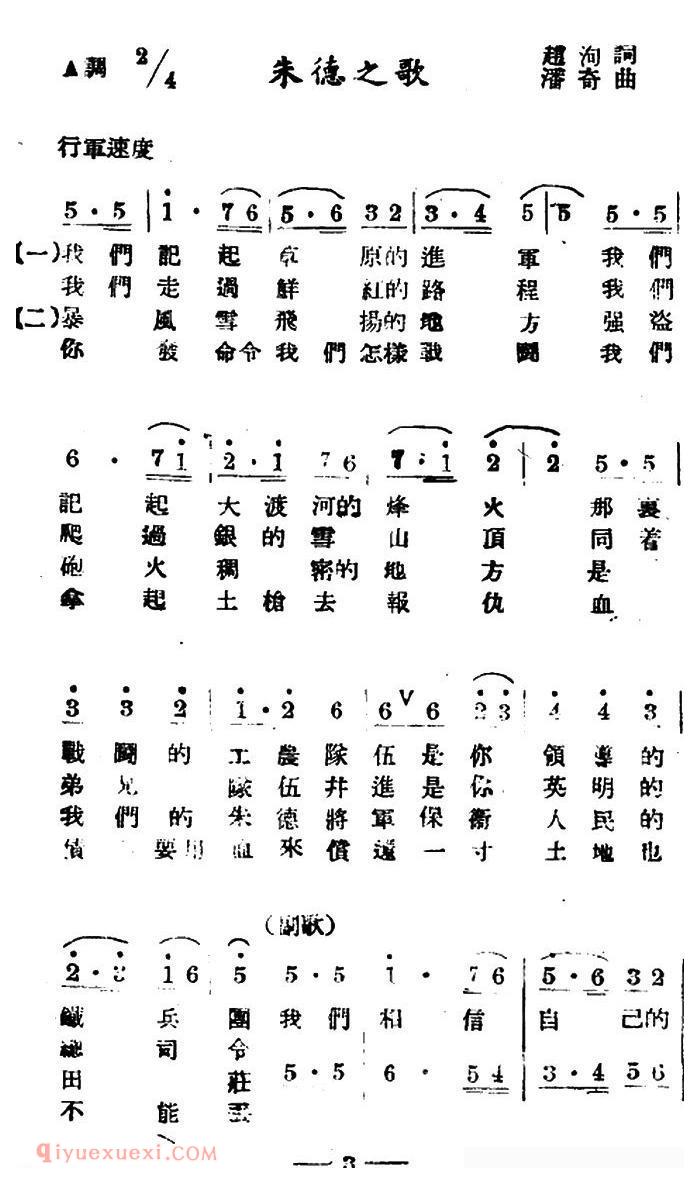 A調 2/4 朱德之歌 趙洵詞
潘奇曲
行軍速度
5·5 | 1· 76 | 5·6 32 | 3·4 5 | 5 5·5
【一】我們記起草原的進軍我們
我們走過鮮紅的路程我們
【二】暴風雪飛揚的地方强盜
你發命令我們怎樣戰鬪我們
6· 71 | 2·1 76 | 7·1 2 | 2 5·5
記起大渡河的烽火那裏
爬過銀的雪山頂同着
砲火稠密的地方是
拿起土槍去報仇血
3 3 2 | 1·2 6 | 6 V 6 23 | 4 4 3
戰鬪的工農隊伍是你領導的
弟兄隊伍并進是你英明的
我們的朱德將軍保衞人民的
債要用血來償還一寸土地也
(副歌)
2·3 16 | 5 5·5 | 1· 76 | 5·6 32
鐵兵團我們相信自己的
總司令
5·5 | 6· 54 | 3·4 56
田莊
不能丟
qiyuexuexi.com
— 3 —